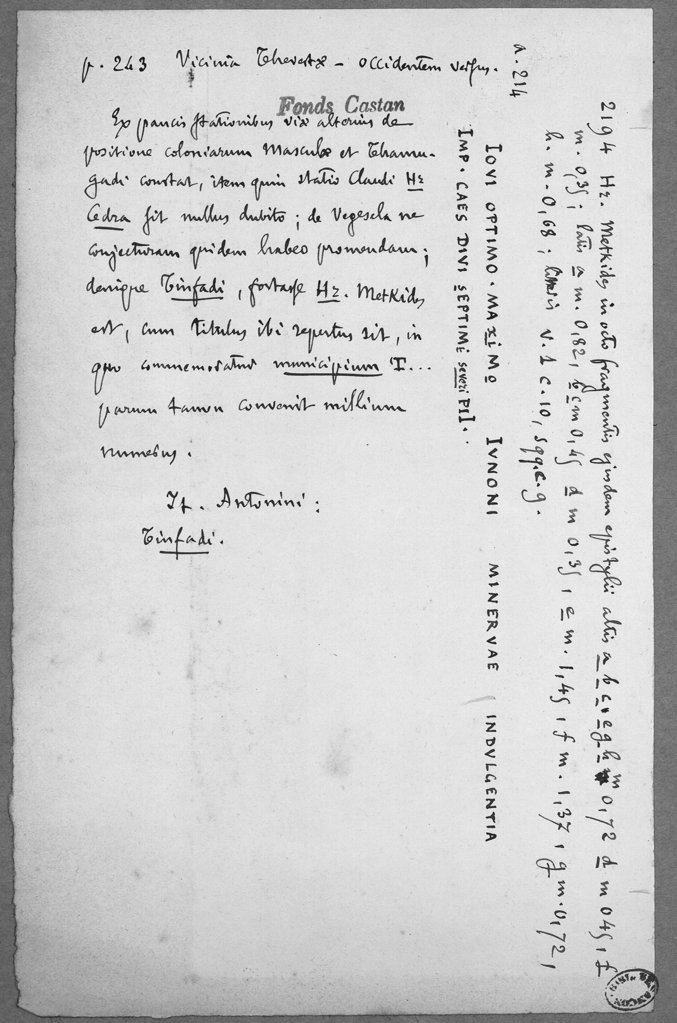 p. 243 Vicinia Thevestæ – occidentem versus.
Fonds Castan
Ex paucis stationibus viæ alterius de
positione coloniarum Masculæ et Thamu-
gadi constat, item quin statio Claudi Hr
Cedra sit nullus dubito; de Vegesela ne
conjecturam quidem habeo promendam;
denique Tinfadi, fortasse Hr. Metkides
est, cum titulus ibi repertus sit, in
quo commemoratur municipium T...
parum tamen convenit millium
numerus.
It. Antonini:
Tinfadi.
a. 214
2194 Hr. Metkides in octo fragmentis ejusdem epistylii altis a b c e g h m 0,72 d m 045, f
m. 0,35; latis a m. 0,82, b c m 0,45 d m 0,35, e m. 1,45, f m. 1,37, g m. 0,72,
h. m. 0,68; litteris v. 1 c. 10, sqq. c. 9.
IOVI OPTIMO · MAXIMO IVNONI MINERVAE INDVLGENTIA
IMP · CAES DIVI SEPTIMI severi PII ·